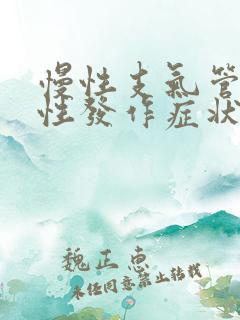 慢性支氣管
性發作症狀
魏正惠
未经同意禁止转载